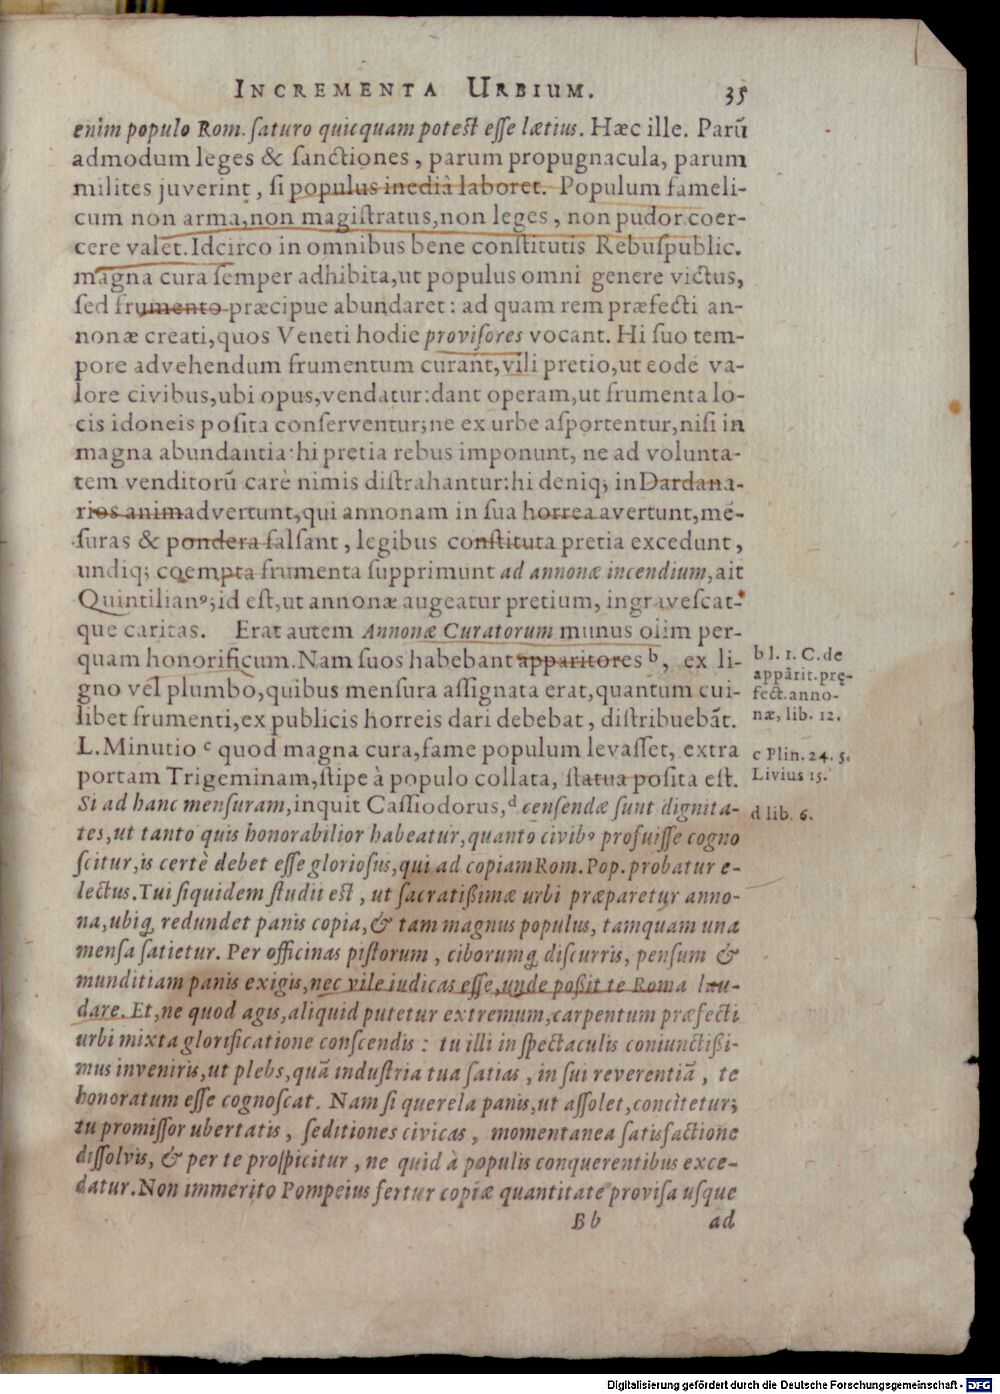 INCREMENTA URBIUM. 35
enim populo Rom. ſaturo quicquam poteſt eſſe lætius. Hæc ille. Parũ
admodum leges & ſanctiones, parum propugnacula, parum
milites juverint, ſi populus inediâ laboret. Populum fameli-
cum non arma, non magiſtratus, non leges, non pudor coer-
cere valet. Idcirco in omnibus bene conſtitutis Rebuſpublic.
magna cura ſemper adhibita, ut populus omni genere victus,
ſed frumento præcipue abundaret: ad quam rem præfecti an-
nonæ creati, quos Veneti hodie proviſores vocant. Hi ſuo tem-
pore advehendum frumentum curant, vili pretio, ut eodẽ va-
lore civibus, ubi opus, vendatur: dant operam, ut frumenta lo-
cis idoneis poſita conſerventur; ne ex urbe aſportentur, niſi in
magna abundantia: hi pretia rebus imponunt, ne ad volunta-
tem venditorũ carè nimis diſtrahantur: hi deniq; in Dardana-
rios animadvertunt, qui annonam in ſua horrea avertunt, mẽ-
ſuras & pondera falſant, legibus conſtituta pretia excedunt,
undiq; coempta frumenta ſupprimunt ad annonæ incendium, ait
Quintilianꝰ; id eſt, ut annonæ augeatur pretium, ingraveſcat-
que caritas. Erat autem Annonæ Curatorum munus olim per-
quam honorificum. Nam ſuos habebant apparitores b, ex li-
gno vel plumbo, quibus menſura aſſignata erat, quantum cui-
libet frumenti, ex publicis horreis dari debebat, diſtribuebãt.
L. Minutio c quod magna cura, fame populum levaſſet, extra
portam Trigeminam, ſtipe à populo collata, ſtatua poſita eſt.
Si ad hanc menſuram, inquit Caſſiodorus, d cenſendæ ſunt dignita-
tes, ut tanto quis honorabilior habeatur, quanto civibꝰ profuiſſe cogno
ſcitur, is certè debet eſſe glorioſus, qui ad copiam Rom. Pop. probatur e-
lectus. Tui ſiquidem ſtudii eſt, ut ſacratißimæ urbi præparetur anno-
na, ubiq; redundet panis copia, & tam magnus populus, tamquam una
menſa ſatietur. Per officinas piſtorum, ciborumq; diſcurris, penſum &
munditiam panis exigis, nec vile iudicas eſſe, unde poßit te Roma lau-
dare. Et, ne quod agis, aliquid putetur extremum, carpentum præfecti
urbi mixta glorificatione conſcendis: tu illi in ſpectaculis coniunctißi-
mus inveniris, ut plebs, quã induſtria tua ſatias, in ſui reverentiã, te
honoratum eſſe cognoſcat. Nam ſi querela panis, ut aſſolet, concìtetur;
tu promiſſor ubertatis, ſeditiones civicas, momentanea ſatisfactione
diſſolvis, & per te proſpicitur, ne quid à populis conquerentibus exce-
datur. Non immerito Pompeius fertur copiæ quantitate proviſa uſque
Bb ad
b l. 1. C. de
appârit. prę-
fect. anno-
næ, lib. 12.
c Plin. 24. 5.
Livius 15.
d lib. 6.
Digitalisierung gefördert durch die Deutsche Forschungsgemeinschaft - DFG